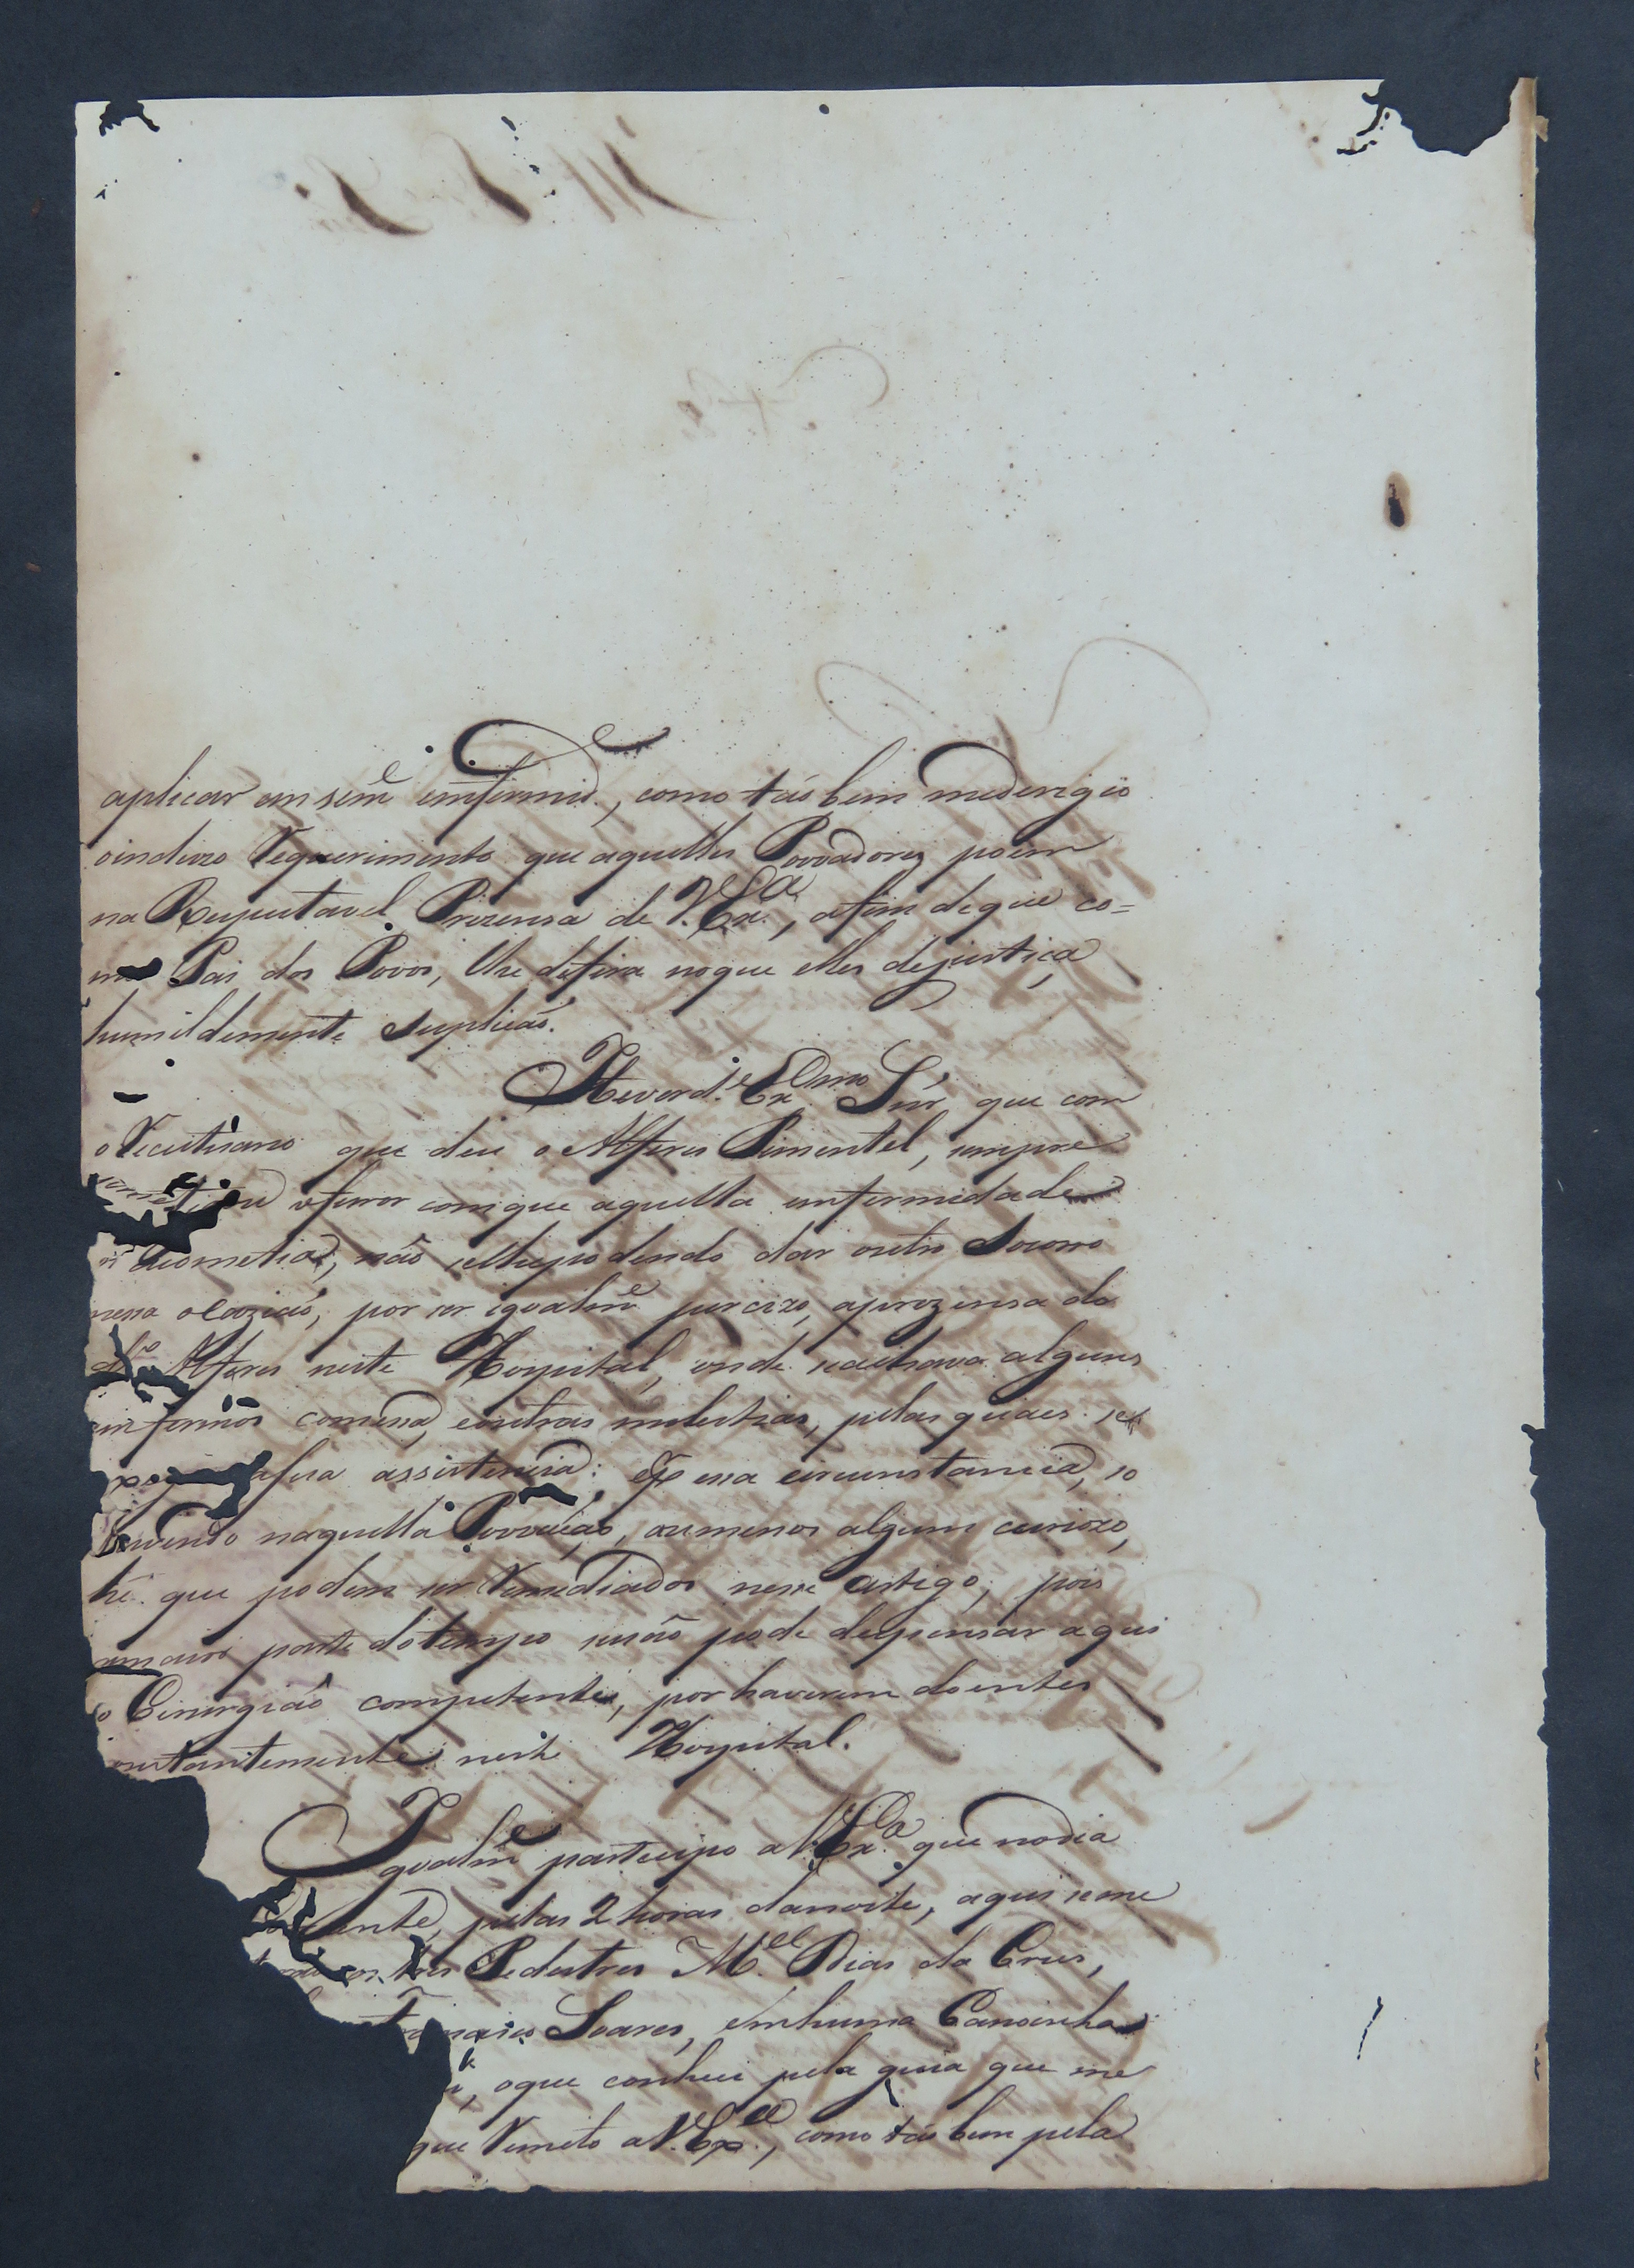 aplicar emsem.e emfermid.e, como táobem mederigio
oincluzo Requerimento que aquelles Povoadores poim
na Respeitavel Prezensa de V. Ex.a, afim deque co=
mo Pai dos Povos, lhe defira noque elles dejustiça
humildemente suplicaó.
He verd.e Ex.mo Snr' que com
o Receituario que deu o Alferes Pimentel, sempre
ofuror comque aquella emfermidade
os acometia, não selhepodendo dar outro Socorro
nessa ocaziaó, por ser igoalm.e percizo aprezensa do
d.o Alferes neste Hospital, onde seachava alguns
imfermos comessa, eoutras molestias, pelas quaes se
afua assistencia: E essa circunstancia, so
havendo naquella Povoaçaó, aomenos algum curiozo,
hé que podem ser Remediados nesse artigo; pois
amaior parte dotempo senão pode despensar aqui
o Cirurgiaó competente, por haverem doentes
constantemente neste Hospital.
Igoalm.e partecipo a V. Ex.a que nodia
pelas 2 horas danoite, aqui seme
os tres Pedestres M.el Dias da Crus,
Soares, emhuma Canoinha
oque conheci pela guia que me
que Remeto a V. Ex.a, como táobem pela